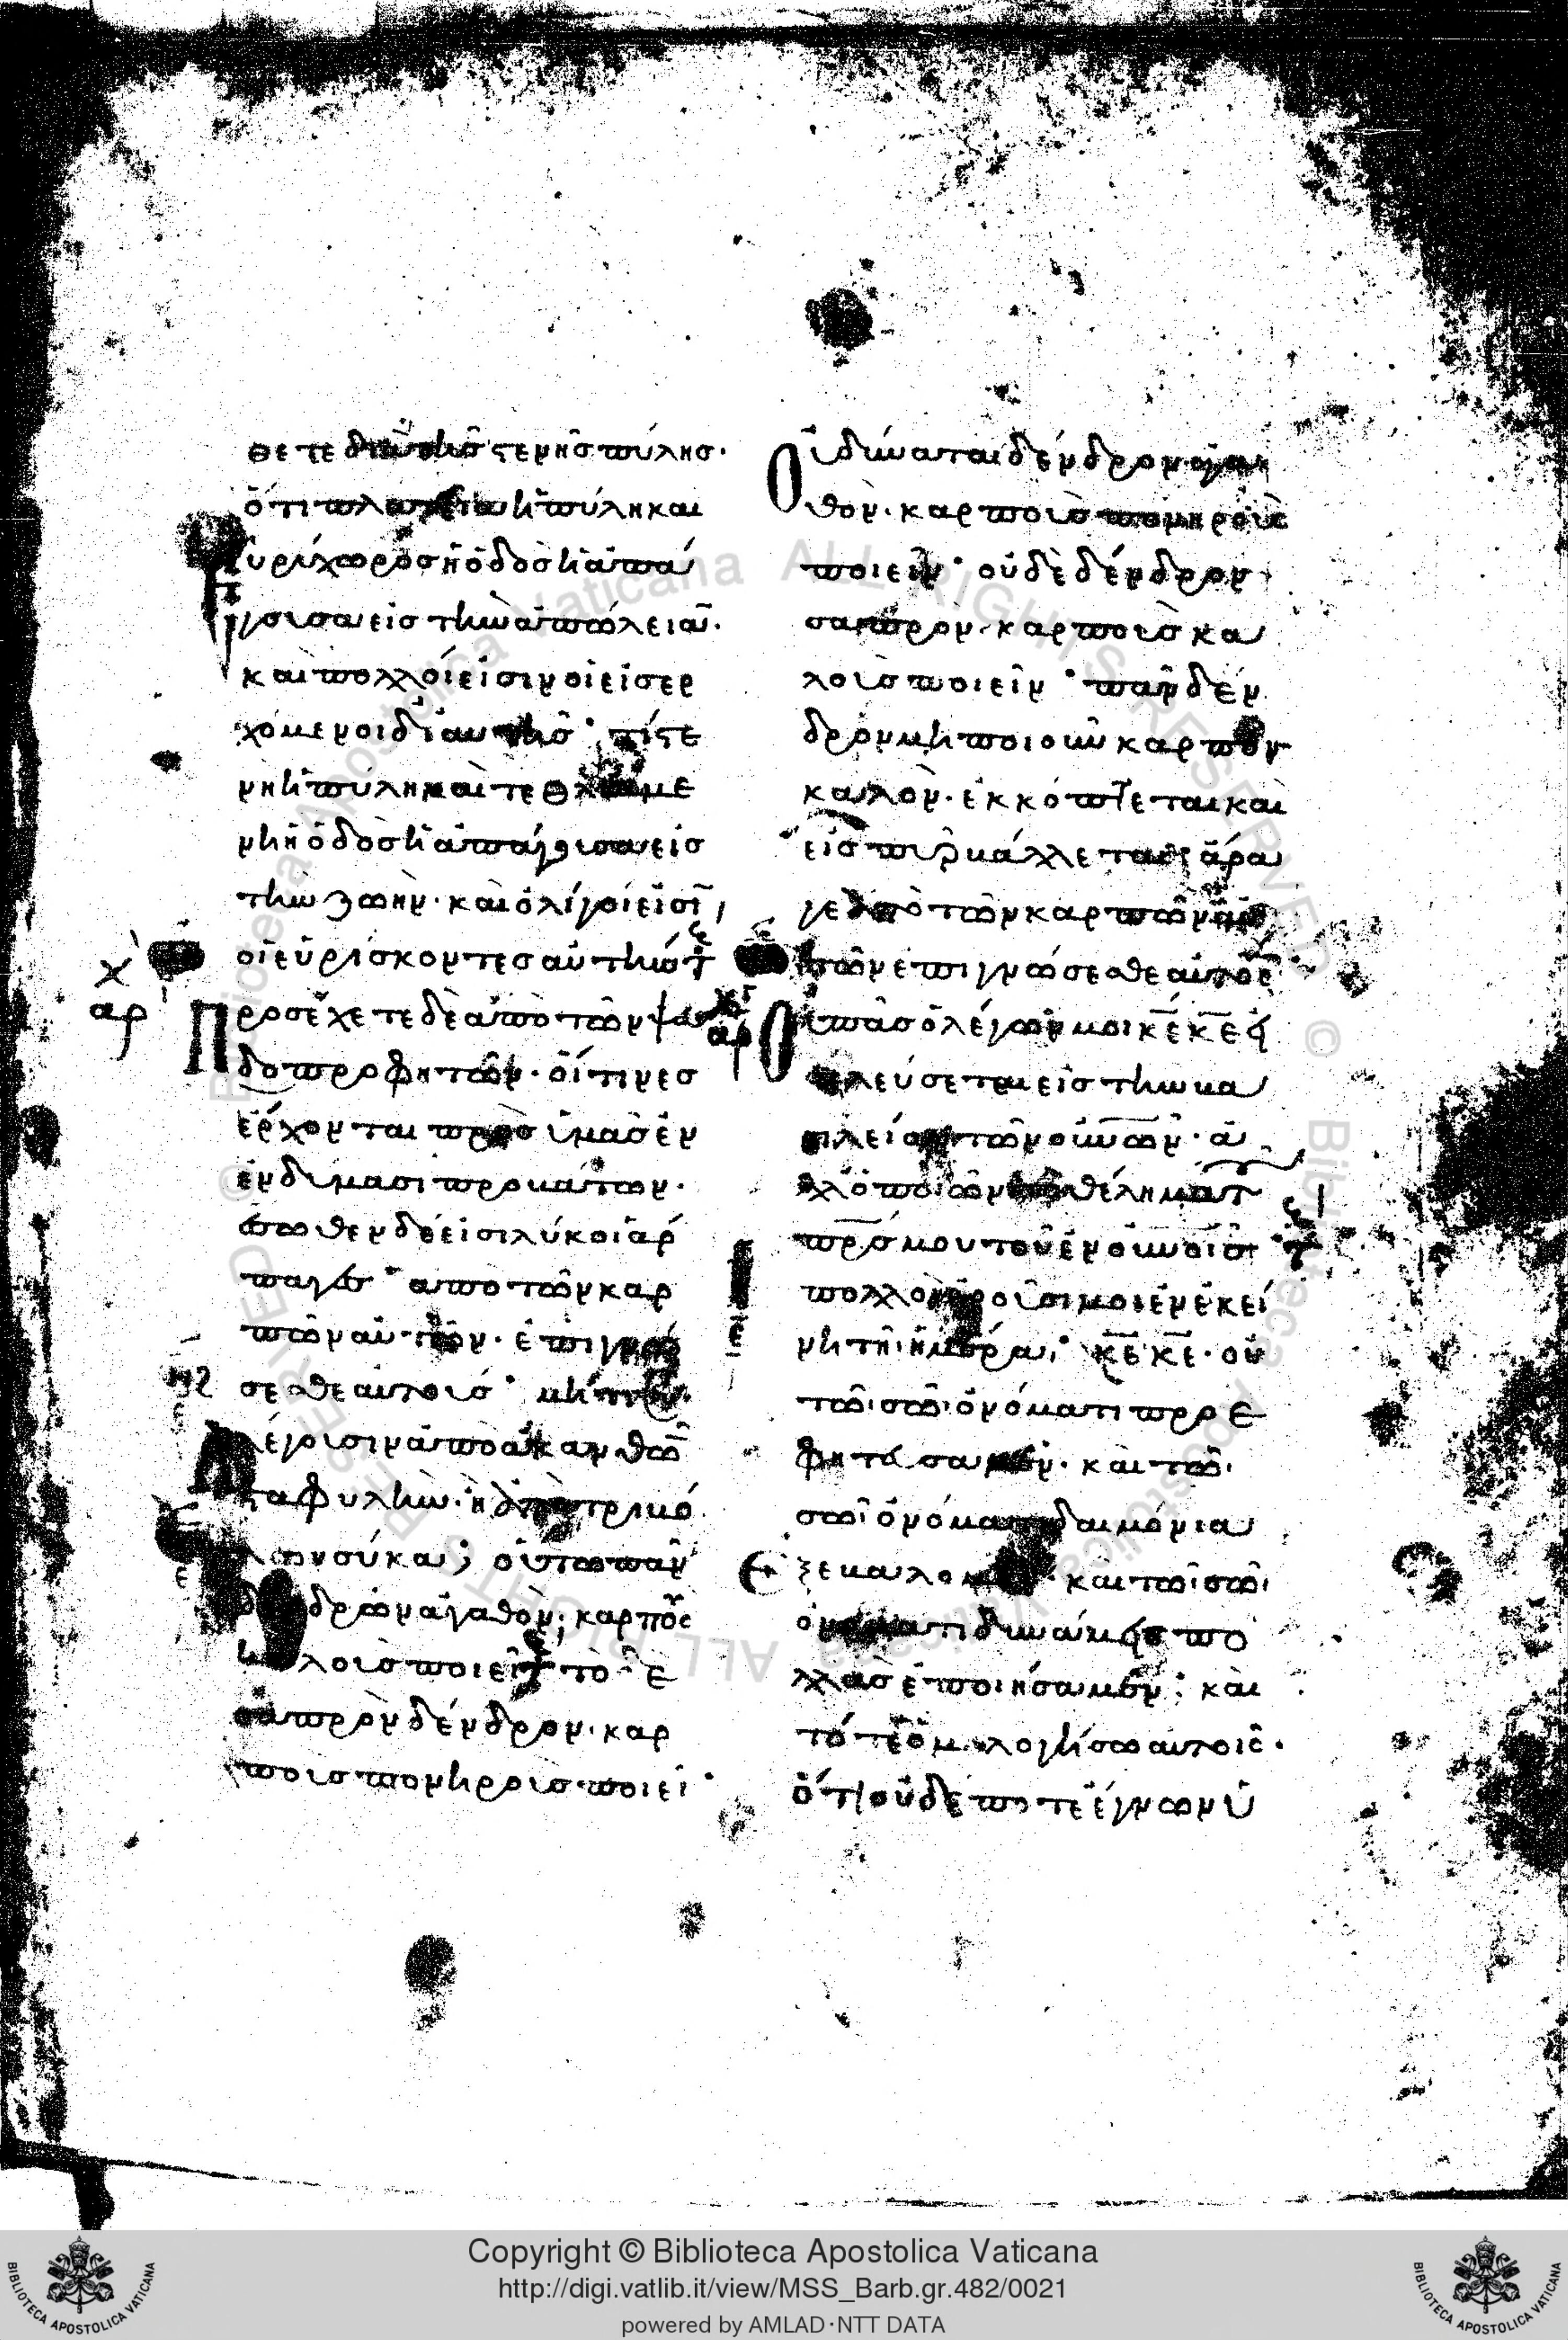 θετε διὰ τῆς στενῆς πύλης·
ὅτι πλατεῖα ἡ πύλη και
εὐρύχωρος ἡ ὁδὸς ἡ ἀπά
γουσα εἰς τὴν ἀπώλειαν̄·
καὶ πολλοί εἰσιν οἱ εἰσερ
χόμενοι δι αυτῆς· τί στε
νὴ ἡ πύλη καὶ τεθλιμμέ
νη ἡ ὁδὸς ἡ ἀπάγουσα εἰς
τὴν ζωήν· καὶ ὀλίγοι εἰσῖ
οἱ εὑρίσκοντες αὐτήν
χ
αρ
Προσέχετε δὲ ἀπὸ τῶν ψευ
δοπροφητῶν· οἵτινες
ἔρχονται πρὸς ὑμᾶς ἐν
ἐνδύμασι προβάτων·
ἔσωθεν δέ εἰσι λύκοι ἅρ
παγες· απο τῶν καρ
πῶν αὐτῶν· ἐπιγνώ
σεσθε αυτους· μήτι
συλλέγουσιν ἀπὸ ἀκανθῶ
σταφυλὴν· ἢ ἀπὸ τριβό
λων σύκα; οὕτω πᾶν
δένδρων ἀγαθὸν; καρποὺς
καλοὺς ποιεῖ· τὸ δὲ
σαπρὸν δένδρον· καρ
ποὺς πονηροὺς ποιεῖ·
Οὐ δύναται δένδρον ἀγα
θὸν· καρποὺς πονηροὺς
ποιεῖν· οὐδὲ δένδρον
σαπρὸν· καρποὺς κα
λοὺς ποιεῖν· πᾶν δέν
δρον μὴ ποιοῦν καρπὸν
καλὸν· ἐκκόπτεται και
εἰς πῦρ βάλλεται· ἄρα
γε ἀπὸ τῶν καρπῶν αὐ
τῶν ἐπιγνώσεσθε αυτοὺς
Οὐ πᾶς ὁ λέγων μοι κ̅ε̅ κ̅ε̅ εἰ
σελεύσεται εἰς τὴν βα
σιλείαν τῶν οὐνῶν· ἀ
λλ᾽ ὁ ποιῶν τὸ θέλημα τ
πρ̅σ̅ μου τοῦ ἐν οὐνοῖσ
πολλοὶ ἐροῦσι μοι ἐν ἐκεί
νη τῆ ἡμέρα, κ̅ε̅ κ̅ε̅· οὐ
τῶ σῶ ὀνόματι προε
φητεύσαμεν· καὶ τῶ
σῶ ὀνόματι δαιμόνια
ἐξεβάλομεν· καὶ τῶ σῶ
ὀνόματι δυνάμεις πο
λλὰς ἐποιήσαμεν; καὶ
τότε ὁμολογήσω αυτοῖς·
ὅτι οὐδέποτε ἔγνων ὑ
Copyright © Biblioteca Apostolica Vaticana
http://digi.vatlib.it/view/MSS_Barb.gr.482/0021
powered by AMLAD·NTT DATA